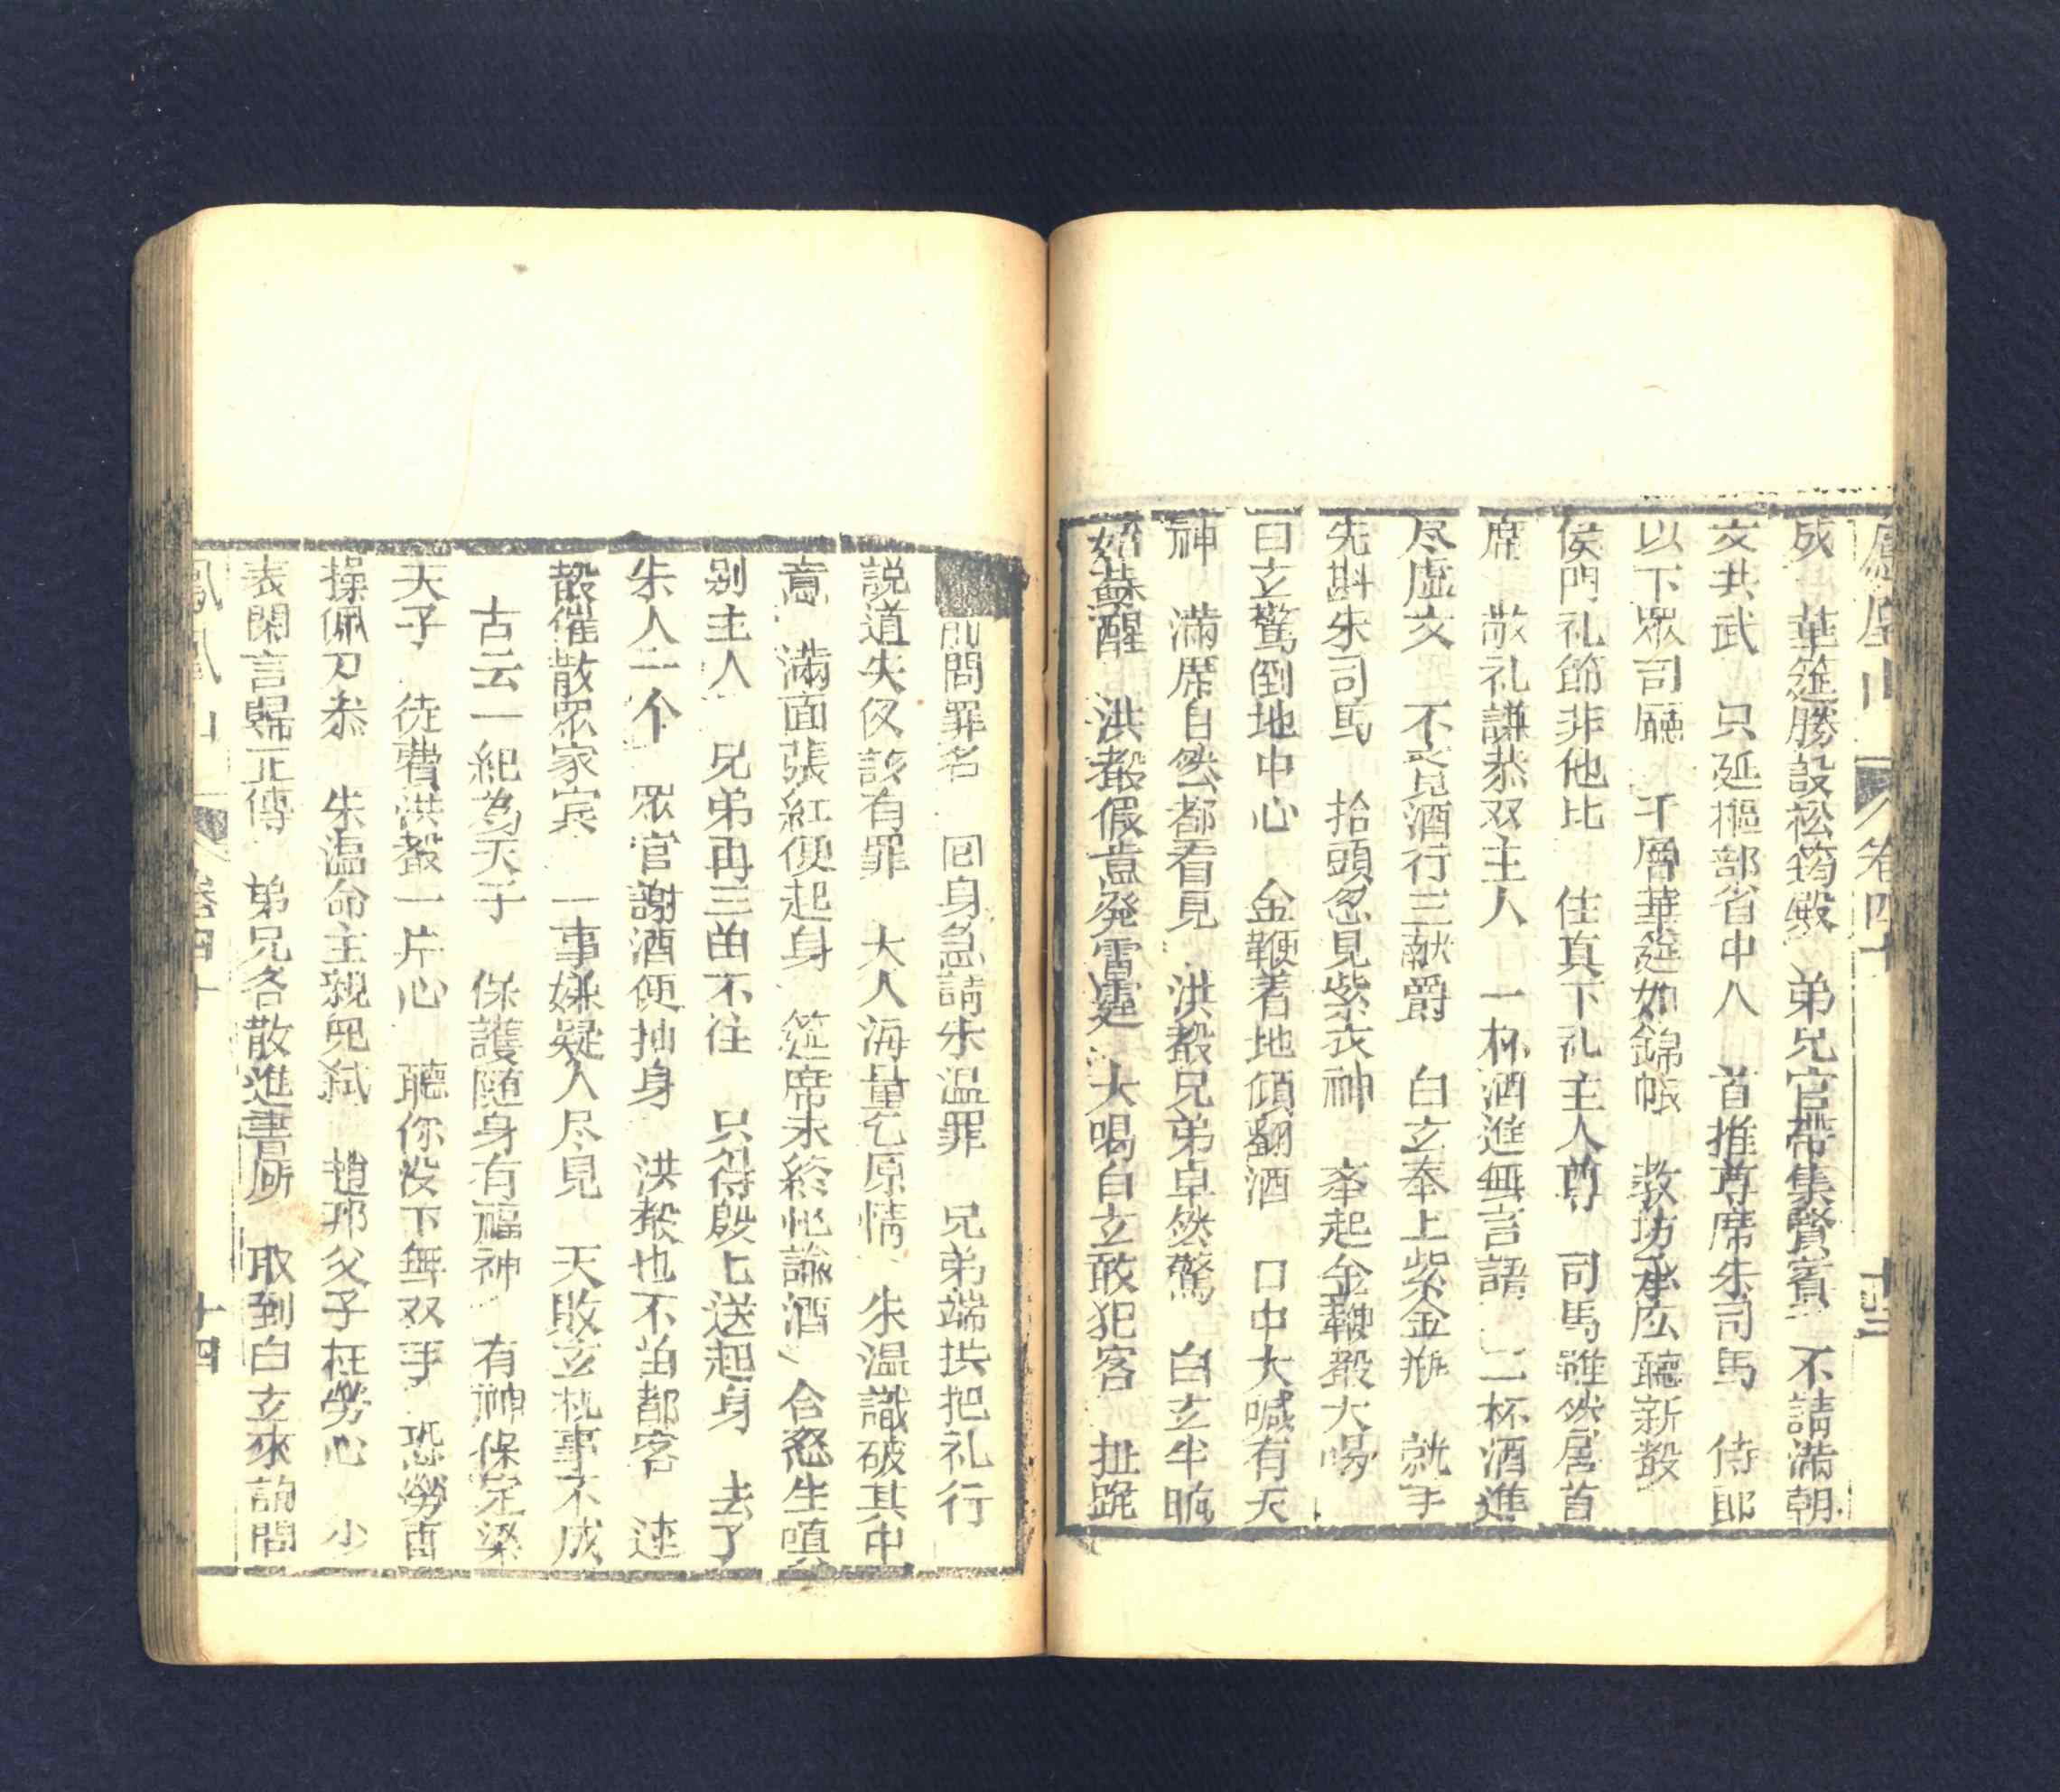 鳳凰山 卷四十 十三
成 華筵勝設松筠殿 弟兄官帶集賢賓 不請滿朝
文共武 只延樞部省中人 首推尊席朱司馬 侍郎
以下眾司廳 千層華筵如錦帳 教坊承応聽新聲
侯門礼節非他比 住真下礼主人尊 司馬雖然居首
席 敬礼謙恭双主人 一杯酒進無言語 二杯酒進
尽虛文 不覚酒行三献爵 白玄奉上紫金瓶 就手
先斟朱司馬 抬頭忽見紫衣神 夆起金鞭毅大喝
曰玄驚倒地中心 金鞭着地傾翻酒 口中大喊有天
神 滿席自然都看見 洪毅兄弟卓然驚 白玄半晌
始蘇醒 洪毅假意発雷霆 大喝白玄敢犯客 扯跪
前問罪名 回身急請朱温罪 兄弟端拱把礼行
説道失仪該有罪 大人海量乞原情 朱温識破其中
意 滿面張紅便起身 筵席未終怕諭酒 含愁生嗔
别主人 兄弟再三留不住 只得殷七送起身 去了
朱人一个 眾官謝酒便抽身 洪毅也不留都客 連
聲催散眾家宾 一事嫌疑人尽見 天敗玄机事不成
古云一紀為天子 保護随身有福神 有神保定梁
天子 徒費洪毅一片心 聽你没下無双手 恐勞
操佩刀叅 朱温命主親児弑 趙邦父子枉勞心 少
表閑言歸正傳 弟兄各散進書房 取到白玄來訪問
鳳凰山 卷四十 十四